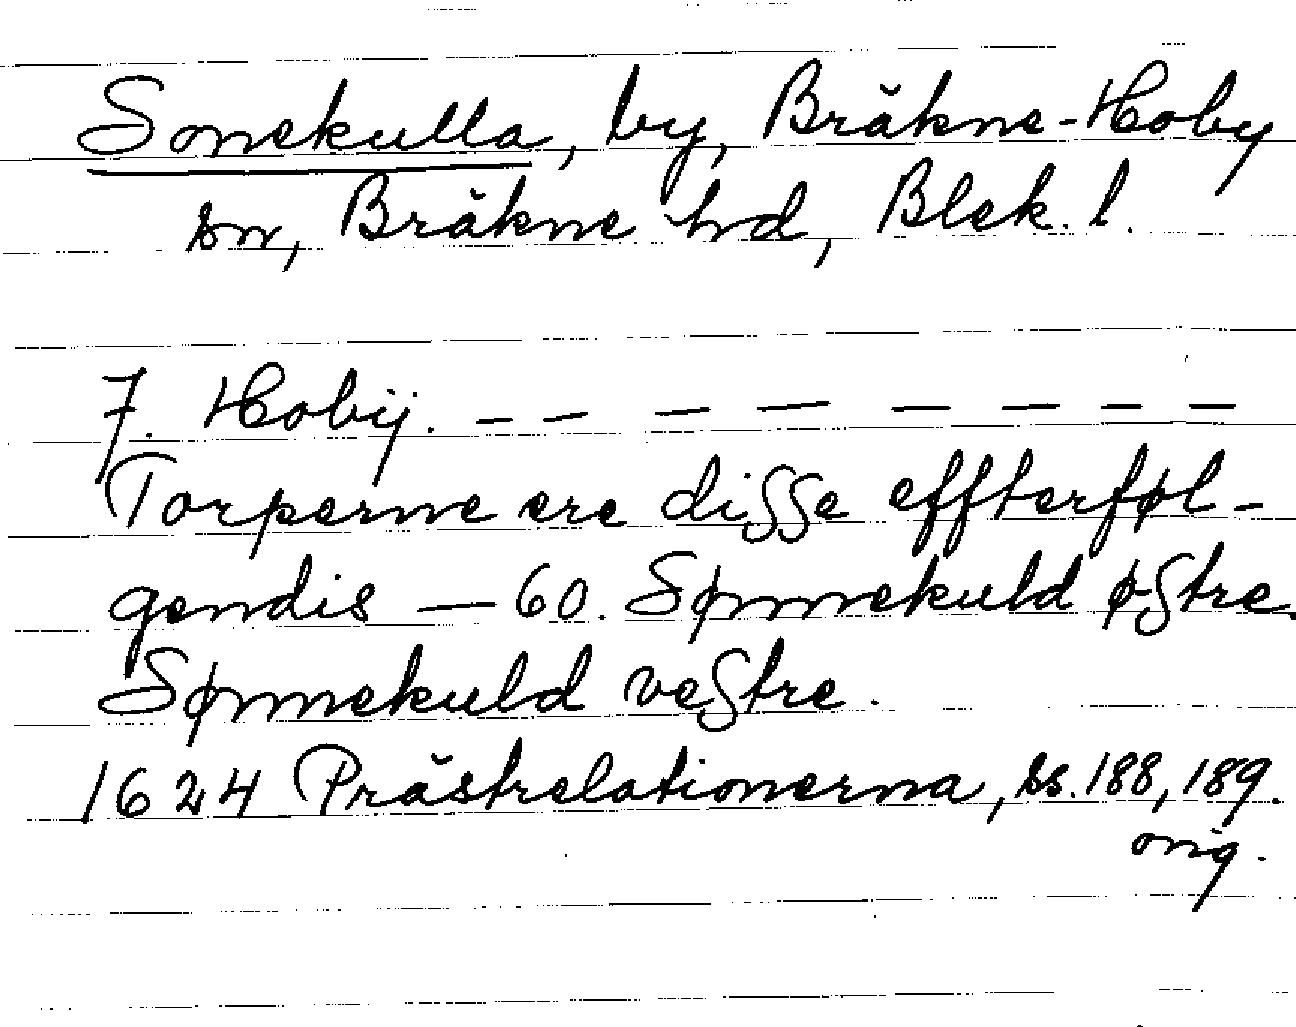 Sonekulla, by, Bräkne-Hoby
sn, Bräkne hd, Blek. l.
7. Hobÿ. – – – – – – – –
Torperne ere disse effterføl-
gendis – 60. Sønnekuld østre.
Sønnekuld vestre.
1624 Prästrelationerna, ss. 188, 189.
orig.